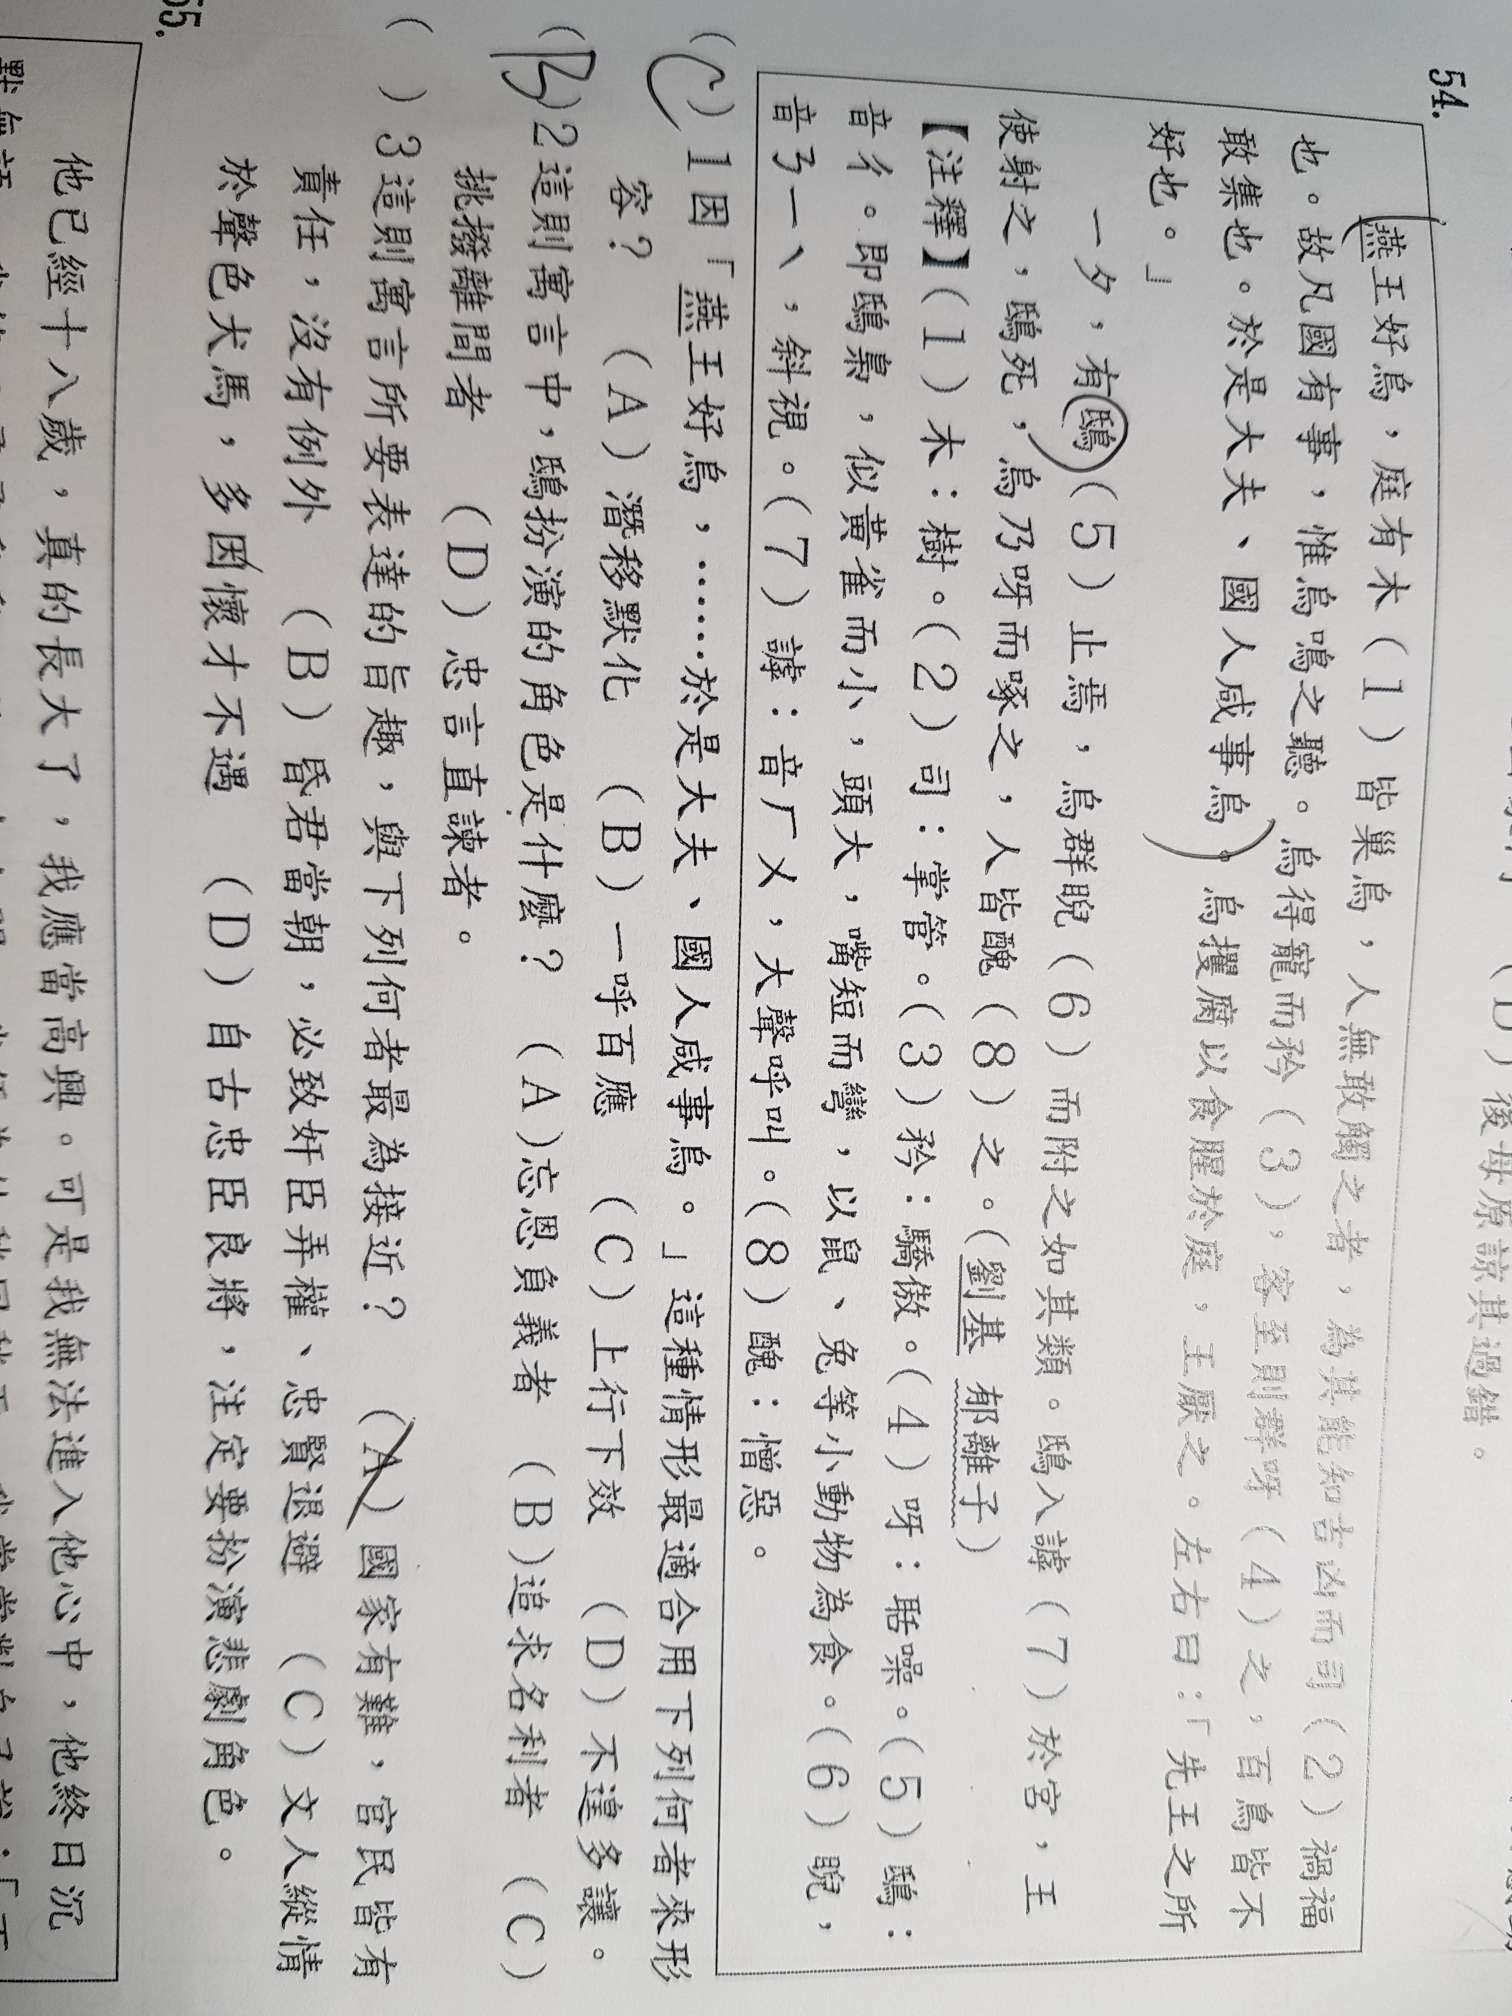 (D)後母原諒其過錯。
54.
燕王好烏，庭有木(1)皆巢烏，人無敢觸之者，為其能知吉凶而司(2)禍福
也。故凡國有事，惟烏鳴之聽。烏得寵而矜(3)，客至則群呀(4)之，百鳥皆不
敢集也。於是大夫、國人咸事烏。烏攫腐以食腥於庭，王厭之。左右曰：「先王之所
好也。」
一夕，有鴟(5)止焉，烏群睨(6)而附之如其類。鴟入謼(7)於宮，王
使射之，鴟死，烏乃呀而啄之，人皆醜(8)之。(劉基 郁離子)
【注釋】(1)木：樹。(2)司：掌管。(3)矜：驕傲。(4)呀：聒噪。(5)鴟：
音ㄔ。即鴟梟，似黃雀而小，頭大，嘴短而彎，以鼠、兔等小動物為食。(6)睨，
音ㄋㄧˋ，斜視。(7)謼：音ㄏㄨ，大聲呼叫。(8)醜：憎惡。
(C)1因「燕王好烏，……於是大夫、國人咸事烏。」這種情形最適合用下列何者來形
容？ (A)潛移默化 (B)一呼百應 (C)上行下效 (D)不遑多讓。
(B)2這則寓言中，鴟扮演的角色是什麼？ (A)忘恩負義者 (B)追求名利者 (C)
挑撥離間者 (D)忠言直諫者。
( )3這則寓言所要表達的旨趣，與下列何者最為接近？ (A)國家有難，官民皆有
責任，沒有例外 (B)昏君當朝，必致奸臣弄權、忠賢退避 (C)文人縱情
於聲色犬馬，多因懷才不遇 (D)自古忠臣良將，注定要扮演悲劇角色。
55.
他已經十八歲，真的長大了，我應當高興。可是我無法進入他心中，他終日沉
默無語